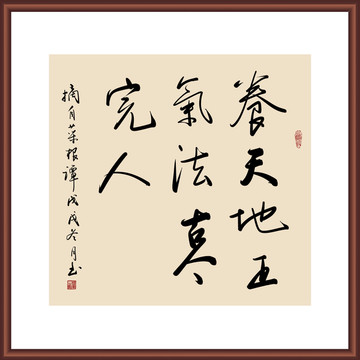 養天地正
氣法古今
完人
摘自菜根譚戊戌冬月玉